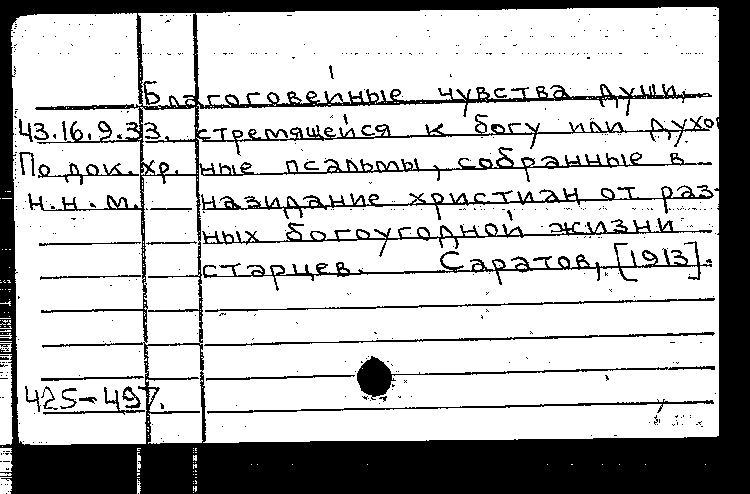 Благоговейные чувства души,
43.16.9.33. стремящейся к богу или духов
По док.хр. ные псальмы, собранные в
н.н.м. назидание христиан от раз-
ных богоугодной жизни
старцев. Саратов, [1913].
425-497.